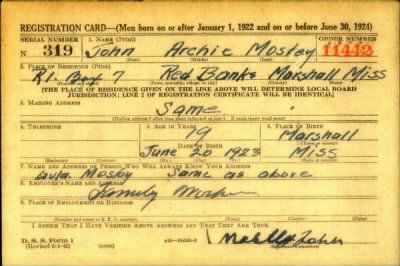 REGISTRATION CARD—(Men born on or after January 1, 1922 and on or before June 30, 1924)
SERIAL NUMBER 1. NAME (Print) ORDER NUMBER
N 319 John Archie Mosby 11442
2. PLACE OF RESIDENCE (Print)
Rt. Box 7 Red Banks Marshall Miss
[THE PLACE OF RESIDENCE GIVEN ON THE LINE ABOVE WILL DETERMINE LOCAL BOARD
JURISDICTION; LINE 2 OF REGISTRATION CERTIFICATE WILL BE IDENTICAL]
3. MAILING ADDRESS
Same
4. TELEPHONE 5. AGE IN YEARS 6. PLACE OF BIRTH
19 Marshall
DATE OF BIRTH
June 20 1923 Miss
7. NAME AND ADDRESS OF PERSON WHO WILL ALWAYS KNOW YOUR ADDRESS
Lula Mosby Same as above
8. EMPLOYER'S NAME AND ADDRESS
9. PLACE OF EMPLOYMENT OR BUSINESS
I AFFIRM THAT I HAVE VERIFIED ABOVE ANSWERS AND THAT THEY ARE TRUE.
D. S. S. Form 1
John